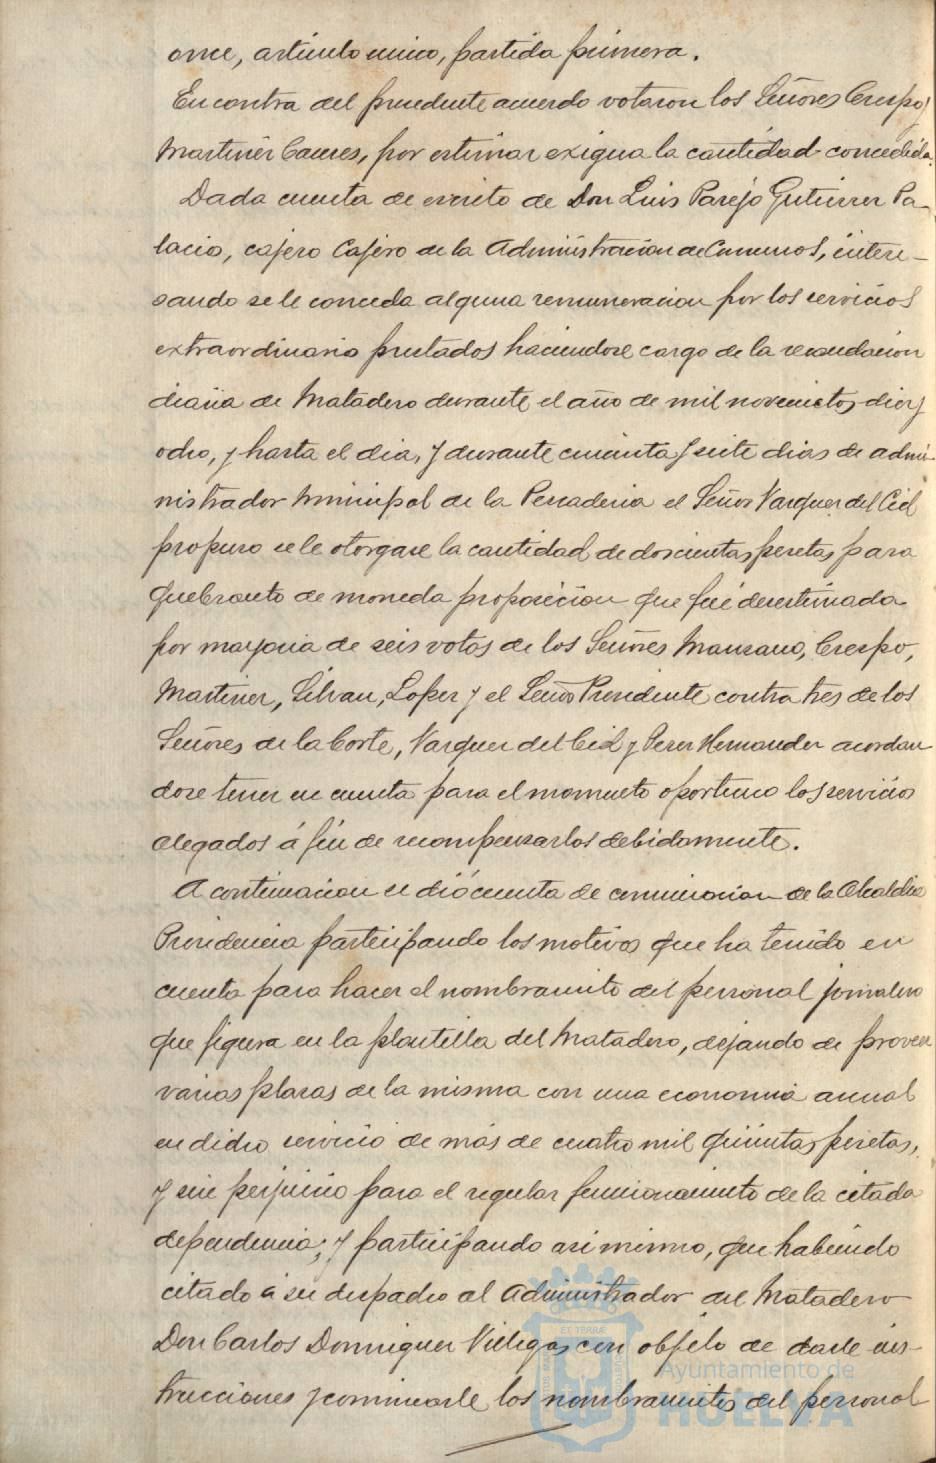 once, artículo unico, partida primera.
En contra del precedente acuerdo votaron los Señores Crespo y
Martinez Caures, por estimar exigua la cantidad concedida.
Dada cuenta de escrito de Don Luis Parejo Gutierrez Pa-
lacio, cajero Cajero de la Administracion de Consumos, intere-
sando se le conceda alguna remuneracion por los servicios
extraordinarios prestados haciendose cargo de la recaudacion
diaria de Matadero durante el año de mil novecientos diez y
ocho, y hasta el dia, y durante cincuenta y siete dias de admi-
nistrador Municipal de la Pescaderia el Señor Vazquez del Cid
propuso se le otorgase la cantidad de doscientas pesetas para
quebranto de moneda proposicion que fué desestimada
por mayoria de seis votos de los Señores Manzano, Crespo,
Martinez, Silvan, Lopez y el Señor Presidente contra tres de los
Señores de la Corte, Vazquez del Cid y Perez Hernandez acordan
dose tener en cuenta para el momento oportuno los servicios
alegados á fin de recompensarlos debidamente.
A continuacion se dió cuenta de comunicacion de la Alcaldia
Presidencia participando los motivos que ha tenido en
cuenta para hacer el nombramiento del personal jornalero
que figura en la plantilla del Matadero, dejando de proveer
varias plazas de la misma con una economia anual
en dicho servicio de más de cuatro mil quinientas pesetas,
y sin perjuicio para el regular funcionamiento de la citada
dependencia; y participando asi mismo, que habiendo
citado á su despacho al Administrador del Matadero
Don Carlos Dominguez Villegas con objeto de darle ins-
trucciones y comunicarle los nombramientos del personal
Ayuntamiento de
HUELVA